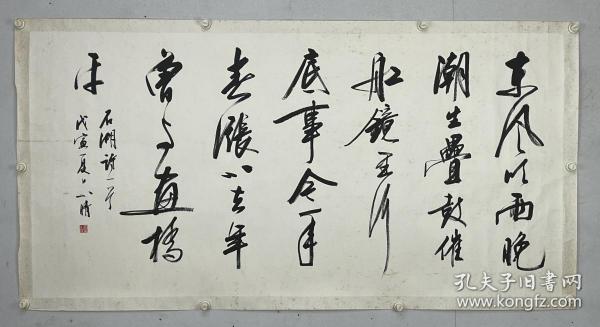 東风吹雨晚
潮生疊鼓催
船鏡里行
底事今年
春漲小去年
曾与画橋
平
石湖詩一首
戊寅夏
孔夫子旧书网
www.kongfz.com